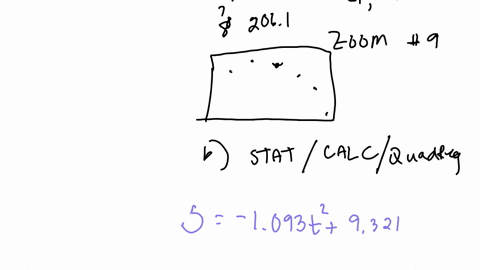 206.1
ZOOM #9
b) STAT / CALC / Quadreg
S = -1.093t² + 9.321